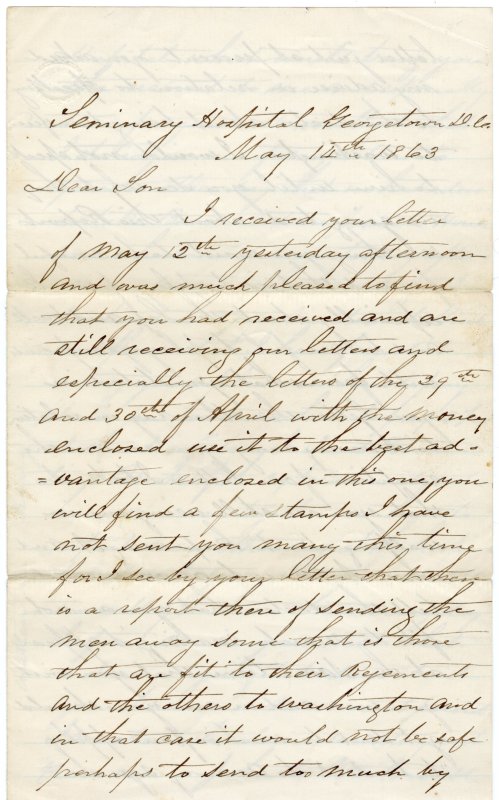 Seminary Hospital Georgetown D. Co.
May 14th 1863
Dear Son
I received your letter
of May 12th yesterday afternoon
and was much pleased to find
that you had received and are
still receiving our letters and
especially the letters of the 29th
and 30th of April with the money
enclosed use it to the best ad-
=vantage enclosed in this one you
will find a few stamps I have
not sent you many this time
for I see by your letter that there
is a report there of sending the
men away some that is those
that are fit to their Rejements
and the others to washington and
in that case it would not be safe
perhaps to send too much by